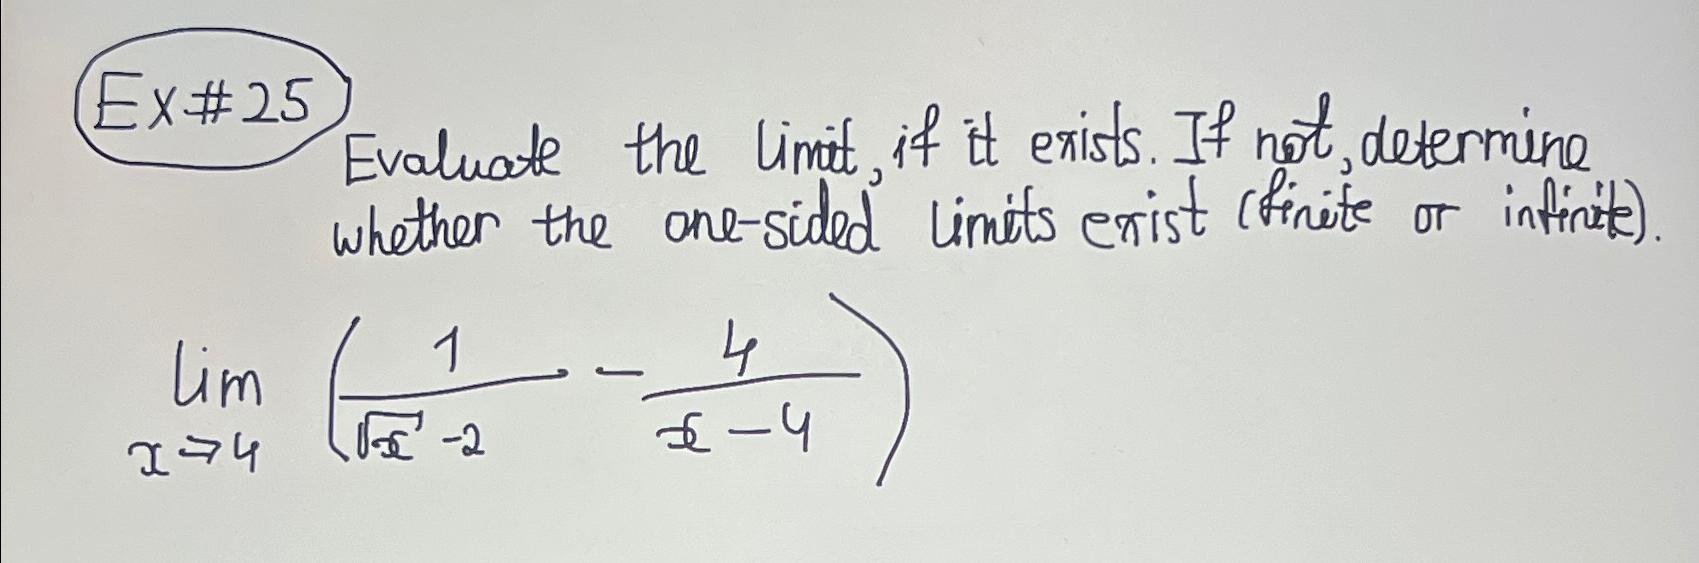 Ex#25
Evaluate the limit, if it exists. If not, determine
whether the one-sided limits exist (finite or infinite).
lim x→4 (1/(√x -2) - 4/(x-4))